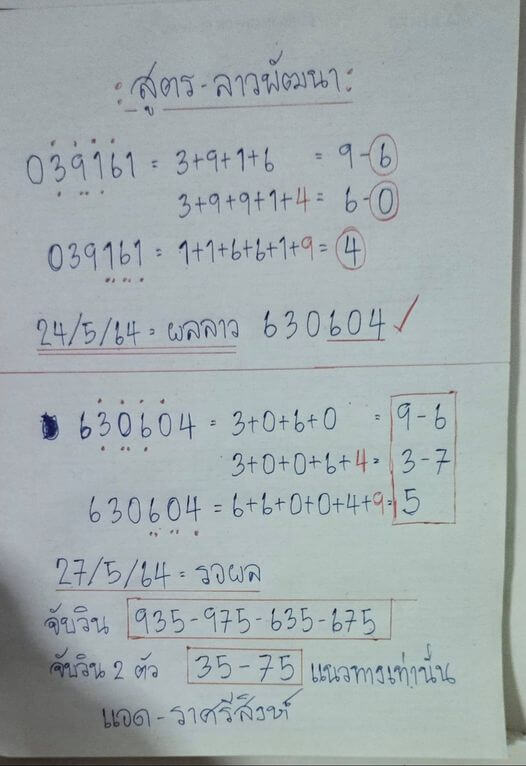 : สูตร-ลาวพัฒนา :
039161 = 3+9+1+6 = 9-6
3+9+9+1+4= 6-0
039161 = 1+1+6+6+1+9= 4
24/5/64 = ผลลาว 630604 ✓
630604 = 3+0+6+0 = 9-6
3+0+0+6+4= 3-7
630604 = 6+6+0+0+4+9= 5
27/5/64 = รอผล
จับวิน 935-975-635-675
จับวิน 2 ตัว 35-75 แนวทางเท่านั้น
แอด-ราศรีสิงห์